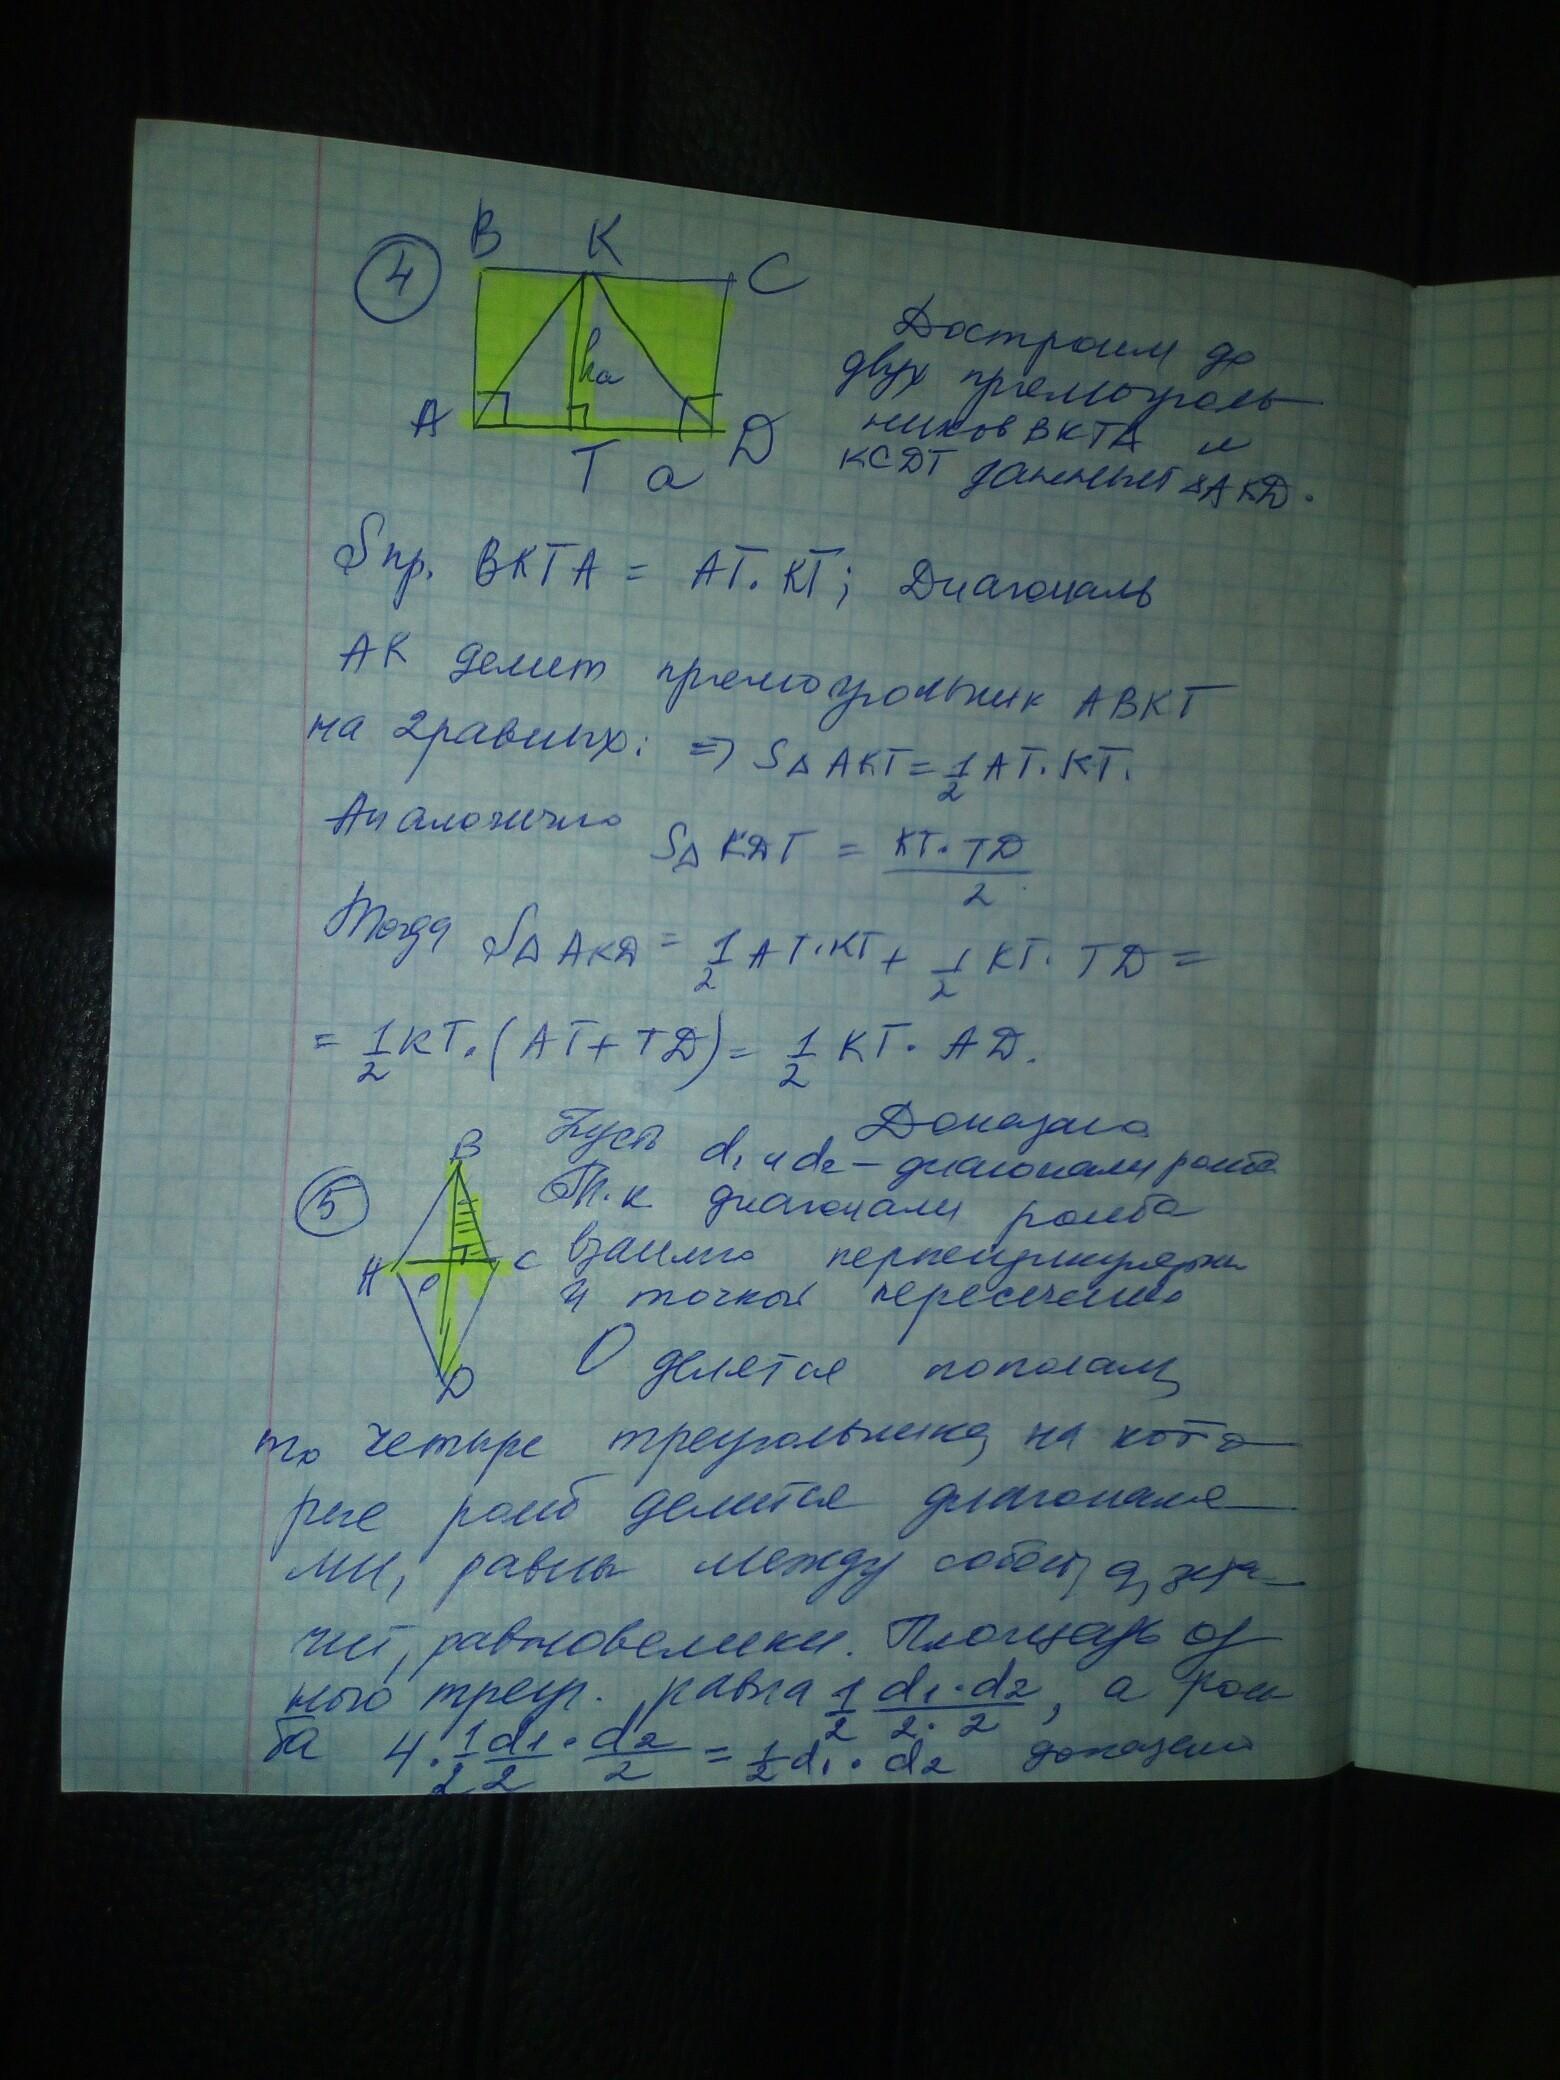 4
B K C
hₐ
A T a D
Достроим до
двух прямоуголь
ников BKTA и
KCDT данный △AKD.
Sпр. BKTA = AT·KT; Диагональ
AK делит прямоугольник ABKT
на 2 равных: => S△AKT = 1/2 AT·KT.
Аналогично S△KDT = KT·TD/2
Тогда S△AKD = 1/2 AT·KT + 1/2 KT·TD =
= 1/2 KT·(AT+TD) = 1/2 KT·AD.
Доказано
5
B
A O C
D
Пусть d₁ и d₂ – диагонали ромба
Т.к диагонали ромба
взаимно перпендикулярны
и точкой пересечения
O делятся пополам,
то четыре треугольника, на кото
рые ромб делится диагоналя
ми, равны между собой, а, зна
чит, равновелики. Площадь од
ного треуг. равна 1/2 d₁·d₂/2·2, а ром
ба 4·1/2 d₁/2·d₂/2 = 1/2 d₁·d₂ доказано